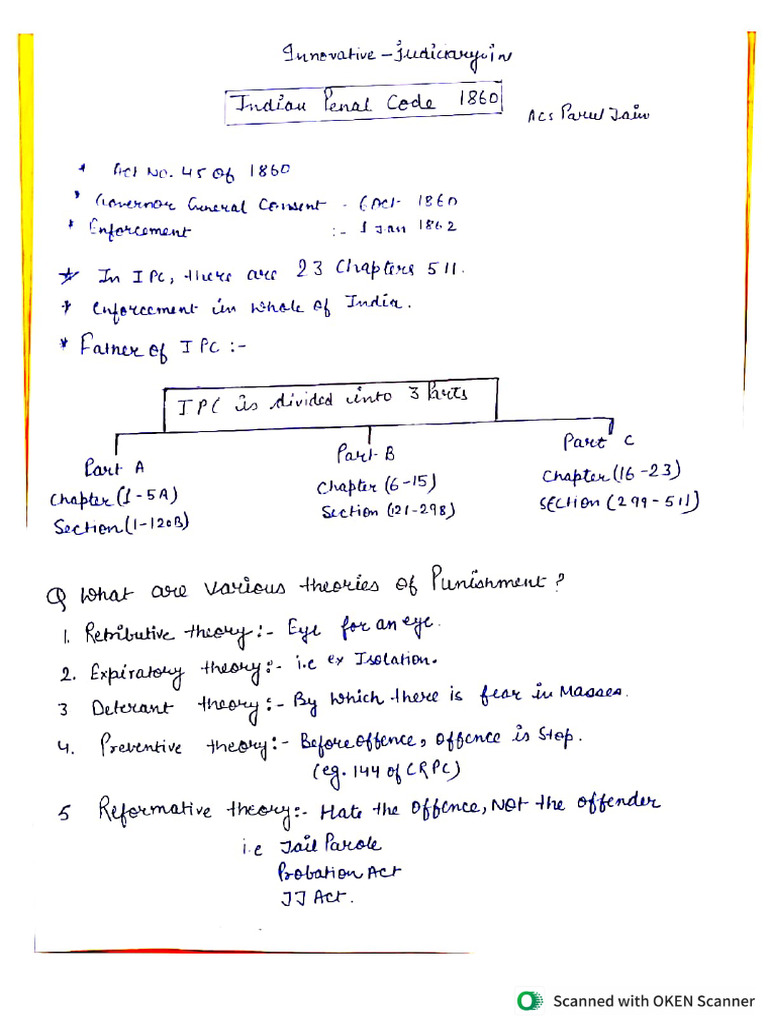 Innovative-Judiciary.in
Indian Penal Code 1860
Acs Parul Jain
* Act No. 45 of 1860
* Governor General Consent - 6 Oct- 1860
* Enforcement :- 1 Jan 1862
* In IPC, there are 23 Chapters 511.
* Enforcement in whole of India.
* Father of IPC :-
IPC is divided into 3 Parts
Part A
Chapter (1-5A)
Section (1-120B)
Part-B
Chapter (6-15)
Section (121-298)
Part C
Chapter (16-23)
Section (299-511)
Q What are various theories of Punishment?
1. Retributive theory:- Eye for an eye.
2. Expiratory theory:- i.e ex Isolation.
3 Deterant theory:- By which there is fear in Masses.
4. Preventive theory:- Before offence, offence is stop.
(eg. 144 of CRPC)
5 Reformative theory:- Hate the offence, Not the offender
i.e Jail Parole
Probation Act
JJ Act.
Scanned with OKEN Scanner